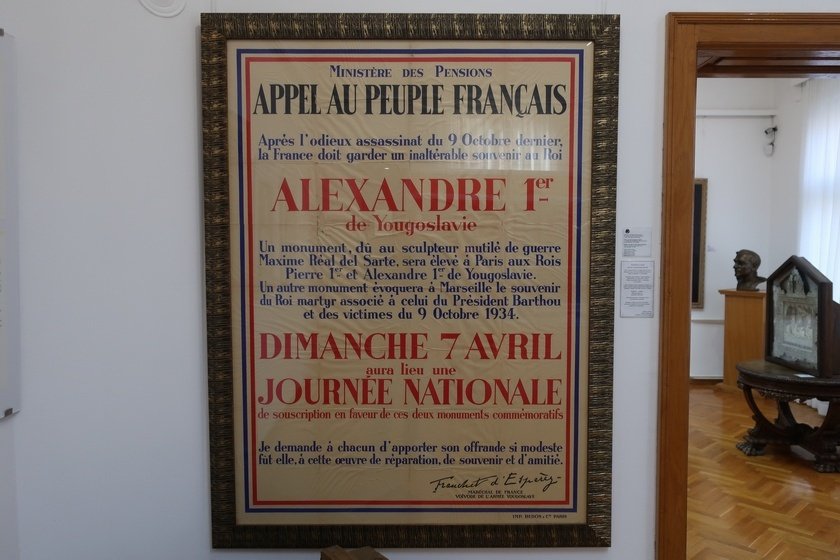 MINISTÈRE DES PENSIONS
APPEL AU PEUPLE FRANÇAIS
Après l'odieux assassinat du 9 Octobre dernier,
la France doit garder un inaltérable souvenir au Roi
ALEXANDRE 1er
de Yougoslavie
Un monument, dû au sculpteur mutilé de guerre
Maxime Réal del Sarte, sera élevé à Paris aux Rois
Pierre 1er et Alexandre 1er de Yougoslavie.
Un autre monument évoquera à Marseille le souvenir
du Roi martyr associé à celui du Président Barthou
et des victimes du 9 Octobre 1934.
DIMANCHE 7 AVRIL
aura lieu une
JOURNÉE NATIONALE
de souscription en faveur de ces deux monuments commémoratifs
Je demande à chacun d'apporter son offrande si modeste
fut-elle, à cette œuvre de réparation, de souvenir et d'amitié.
Franchet d'Espèrey
MARÉCHAL DE FRANCE
VOÏVODE DE L'ARMÉE YOUGOSLAVE